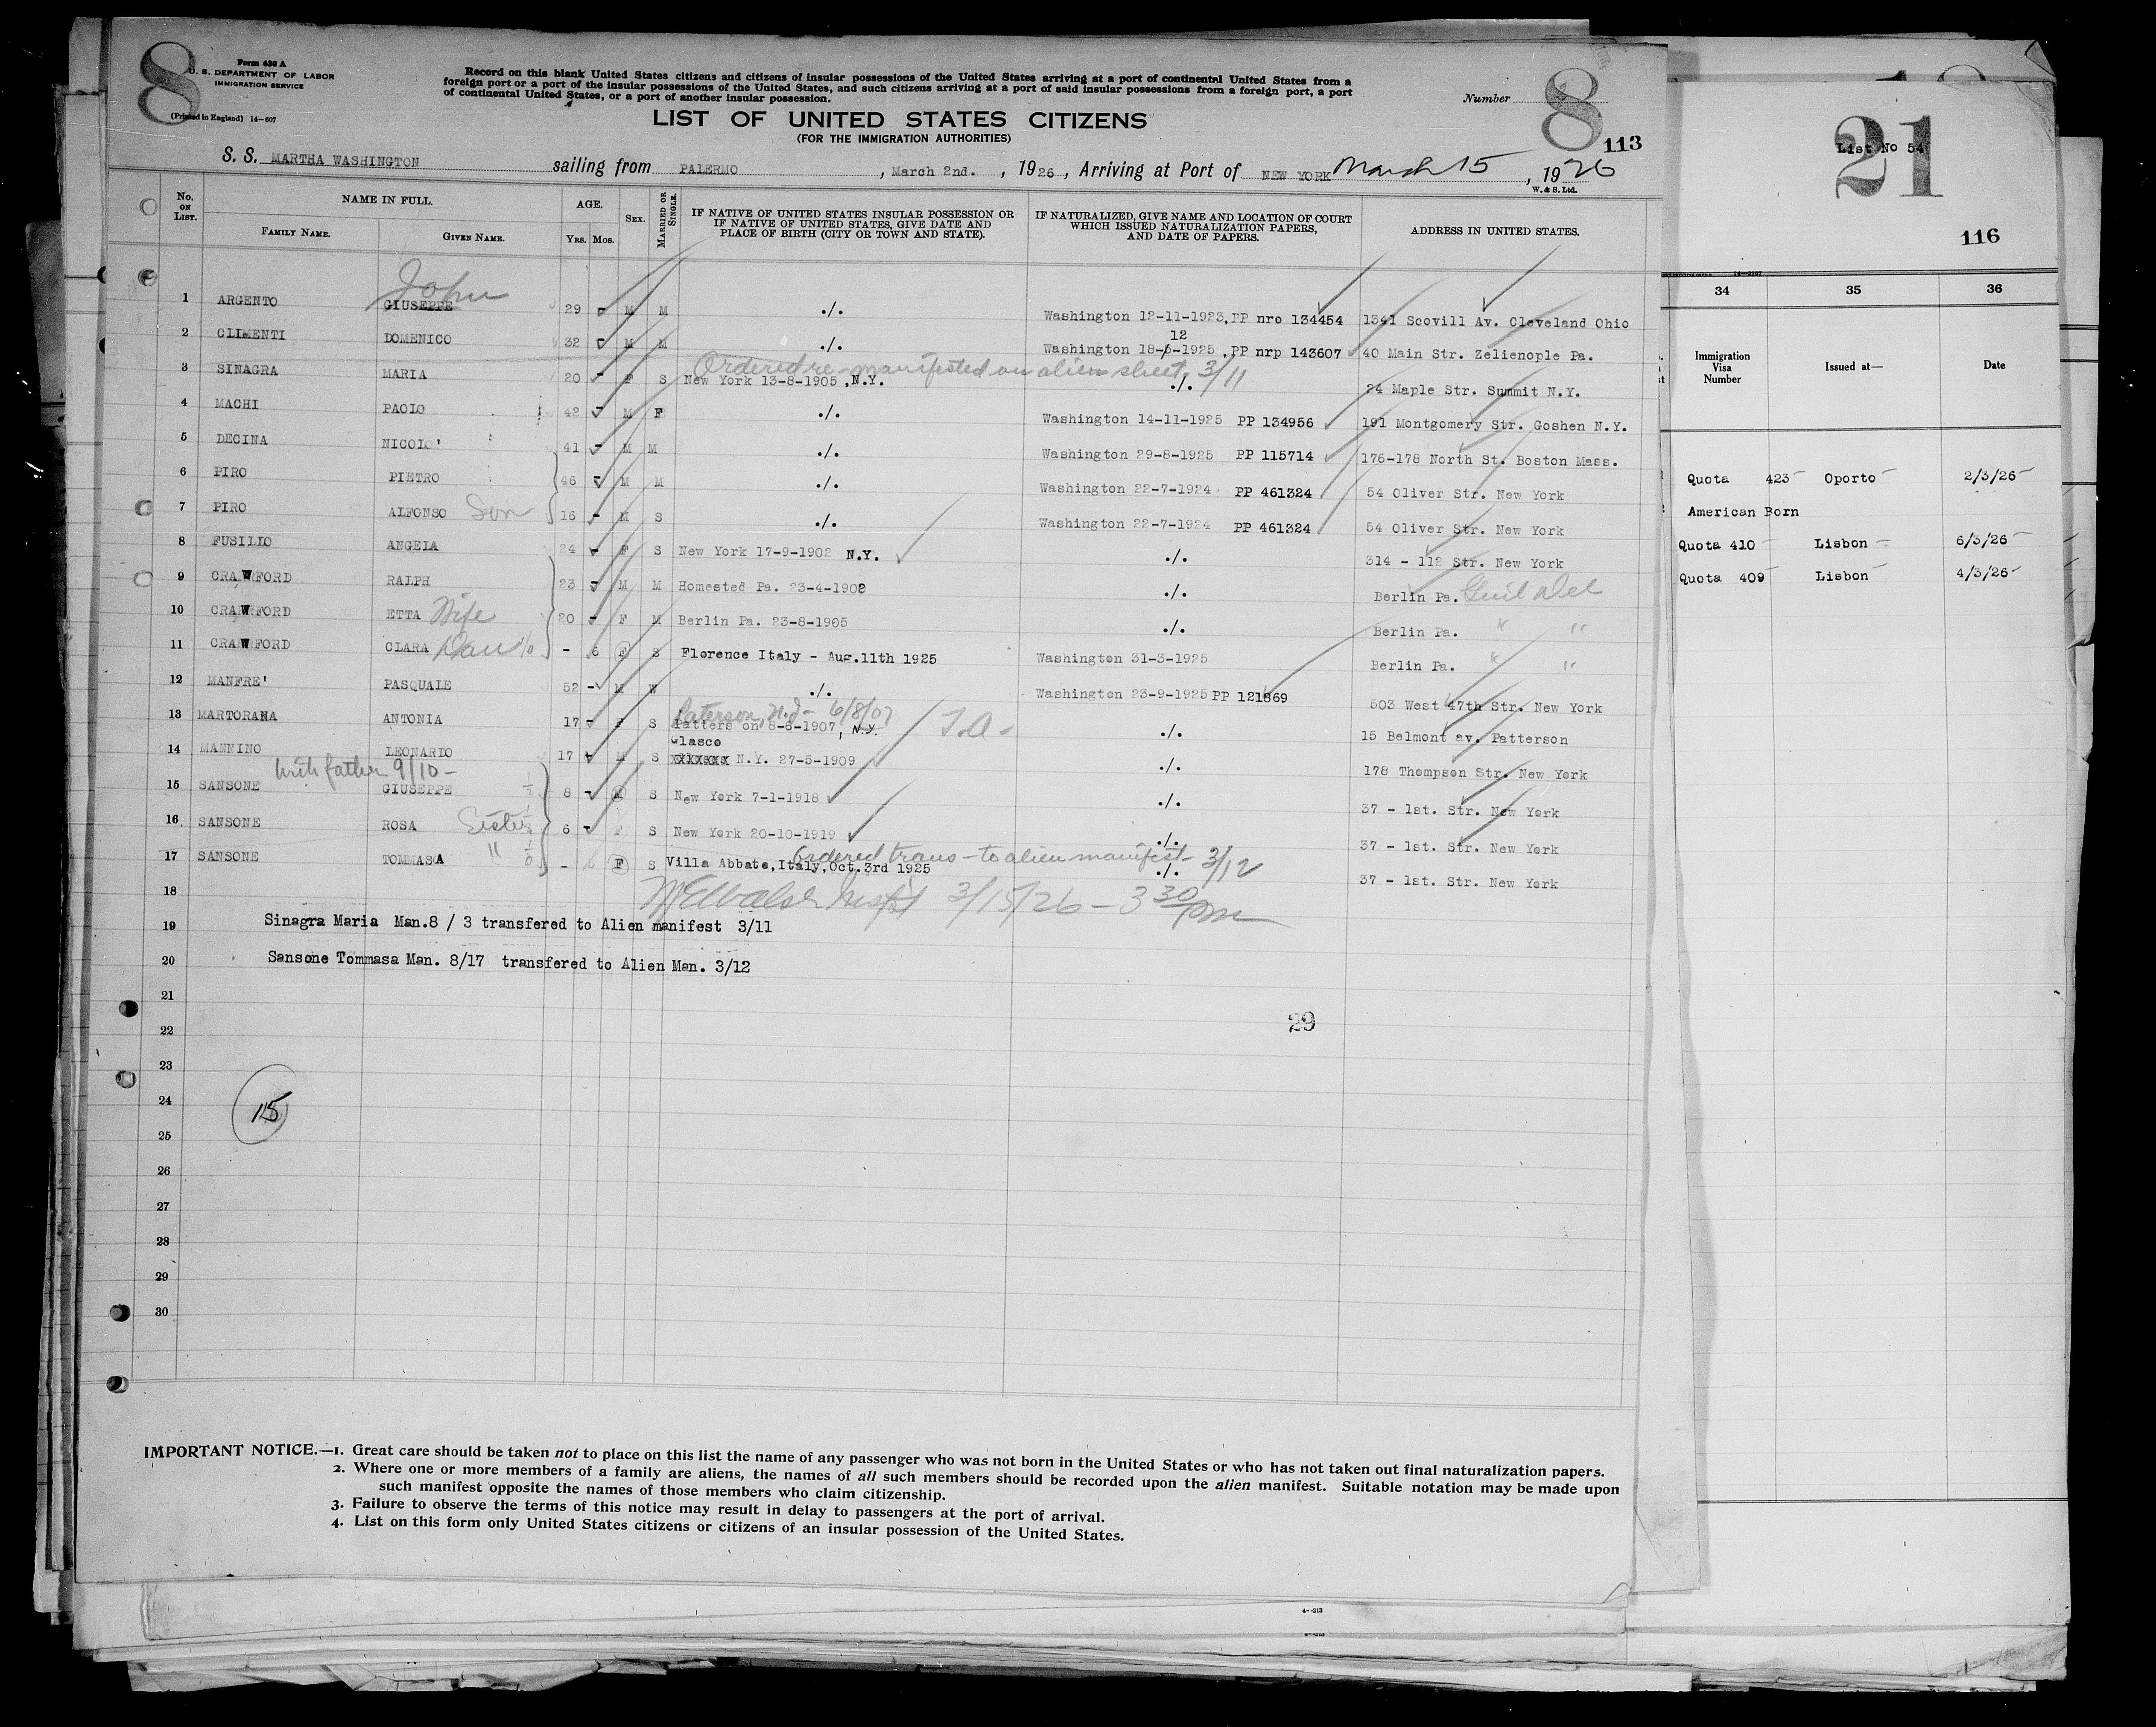 8
Form 630 A
U. S. DEPARTMENT OF LABOR
IMMIGRATION SERVICE
(Printed in England) 14-607
Record on this blank United States citizens and citizens of insular possessions of the United States arriving at a port of continental United States from a
foreign port or a port of the insular possessions of the United States, and such citizens arriving at a port of said insular possessions from a foreign port, a port
of continental United States, or a port of another insular possession.
Number 8
113
LIST OF UNITED STATES CITIZENS
(FOR THE IMMIGRATION AUTHORITIES)
S. S. MARTHA WASHINGTON sailing from PALERMO, March 2nd., 1926, Arriving at Port of NEW YORK March 15, 1926
W. & S. Ltd.
No. ON LIST. NAME IN FULL. FAMILY NAME. GIVEN NAME. AGE. YRS. MOS. SEX. MARRIED OR SINGLE. IF NATIVE OF UNITED STATES INSULAR POSSESSION OR IF NATIVE OF UNITED STATES, GIVE DATE AND PLACE OF BIRTH (CITY OR TOWN AND STATE). IF NATURALIZED, GIVE NAME AND LOCATION OF COURT WHICH ISSUED NATURALIZATION PAPERS, AND DATE OF PAPERS. ADDRESS IN UNITED STATES.
John
1 ARGENTO GIUSEPPE 29 - M M ./. Washington 12-11-1923, PP nro 134454 1341 Scovill Av. Cleveland Ohio
12
2 CLIMENTI DOMENICO 32 - M M ./. Washington 18-6-1925, PP nrp 143607 40 Main Str. Zelienople Pa.
Ordered re-manifested on alien sheet 3/11
3 SINAGRA MARIA 20 - F S New York 13-8-1905, N.Y. ./. 24 Maple Str. Summit N.Y.
4 MACHI PAOLO 42 - M F ./. Washington 14-11-1925 PP 134956 191 Montgomery Str. Goshen N.Y.
5 DECINA NICOLO' 41 - M M ./. Washington 29-8-1925 PP 115714 176-178 North St. Boston Mass.
6 PIRO PIETRO 46 - M M ./. Washington 22-7-1924 PP 461324 54 Oliver Str. New York
7 PIRO ALFONSO Son 16 - M S ./. Washington 22-7-1924 PP 461324 54 Oliver Str. New York
8 FUSILLO ANGELA 24 - F S New York 17-9-1902 N.Y. ./. 314 - 112 Str. New York
9 CRAWFORD RALPH 23 - M M Homested Pa. 23-4-1902 ./. Berlin Pa.
10 CRAWFORD ETTA Wife 20 - F M Berlin Pa. 23-8-1905 ./. Berlin Pa. " "
11 CRAWFORD CLARA Dau - 6 F S Florence Italy - Aug.11th 1925 Washington 31-3-1925 Berlin Pa. " "
12 MANFRE' PASQUALE 52 - M W ./. Washington 23-9-1925 PP 121869 503 West 47th Str. New York
Paterson, N.J - 6/8/07
13 MARTORANA ANTONIA 17 - F S Patterson 8-6-1907, N.Y. ./. 15 Belmont av. Patterson
Glasco
14 MANNINO LEONARDO 17 - M S XXXXXX N.Y. 27-5-1909 ./. 178 Thompson Str. New York
With father 9/10 -
15 SANSONE GIUSEPPE 8 - M S New York 7-1-1918 ./. 37 - 1st. Str. New York
16 SANSONE ROSA Sister 6 - F S New York 20-10-1919 ./. 37 - 1st. Str. New York
Ordered trans - to alien manifest - 3/12
17 SANSONE TOMMASA " - 6 F S Villa Abbate, Italy, Oct. 3rd 1925 ./. 37 - 1st. Str. New York
18 3/15/26 - 3 30 pm
19 Sinagra Maria Man.8 / 3 transfered to Alien manifest 3/11
20 Sansone Tommasa Man. 8/17 transfered to Alien Man. 3/12
21
22 29
23
24 15
25
26
27
28
29
30
IMPORTANT NOTICE.—1. Great care should be taken not to place on this list the name of any passenger who was not born in the United States or who has not taken out final naturalization papers.
2. Where one or more members of a family are aliens, the names of all such members should be recorded upon the alien manifest. Suitable notation may be made upon
such manifest opposite the names of those members who claim citizenship.
3. Failure to observe the terms of this notice may result in delay to passengers at the port of arrival.
4. List on this form only United States citizens or citizens of an insular possession of the United States.
21
List No 54
116
34 35 36
Immigration Visa Number Issued at— Date
Quota 423 Oporto 2/3/26
American Born
Quota 410 Lisbon 6/3/26
Quota 409 Lisbon 4/3/26